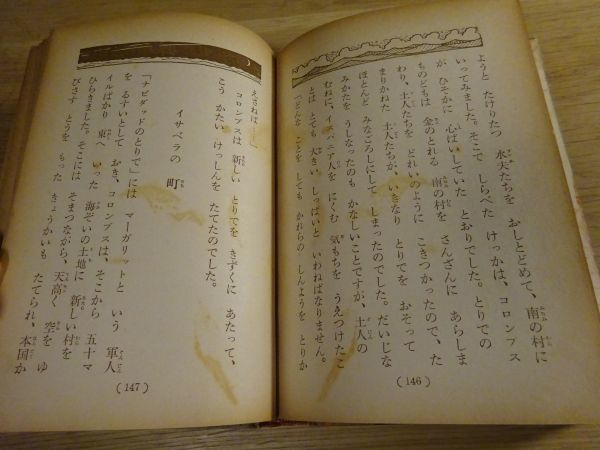 ようと たけりたつ 水夫たちを おしとどめて、南の村に
いってみました。そこで しらべた けっかは、コロンブス
が ひそかに 心ぱいしていた とおりでした。とりでの
ものどもは 金のとれる 南の村を さんざんに あらしま
わり、土人たちを どれいのように こきつかったので、た
まりかねた 土人たちが、いきなり とりでを おそって
ほとんど みなごろしにして しまったのでした。だいじな
みかたを うしなったのも かなしいことですが、土人の
むねに、イスパニア人を にくむ 気もちを うえつけたこ
とは とても 大きい しっぱいと いわねばなりません。
「どんな ことを しても かれらの しんようを とりか
(146)
えさねば……」
コロンブスは 新しい とりでを きずくに あたって、
こう かたい けっしんを たてたのでした。
イサベラの 町
「ナビダッドのとりで」には マーガリットと いう 軍人
を るすいとして おき、コロンブスは、そこから 五十マ
イルばかり 東へ いった 海ぞいの土地に 新しい村を
ひらきました。そこには そまつながら、天高く 空を ゆ
びさす とうを もった きょうかいも たてられ、本国か
(147)